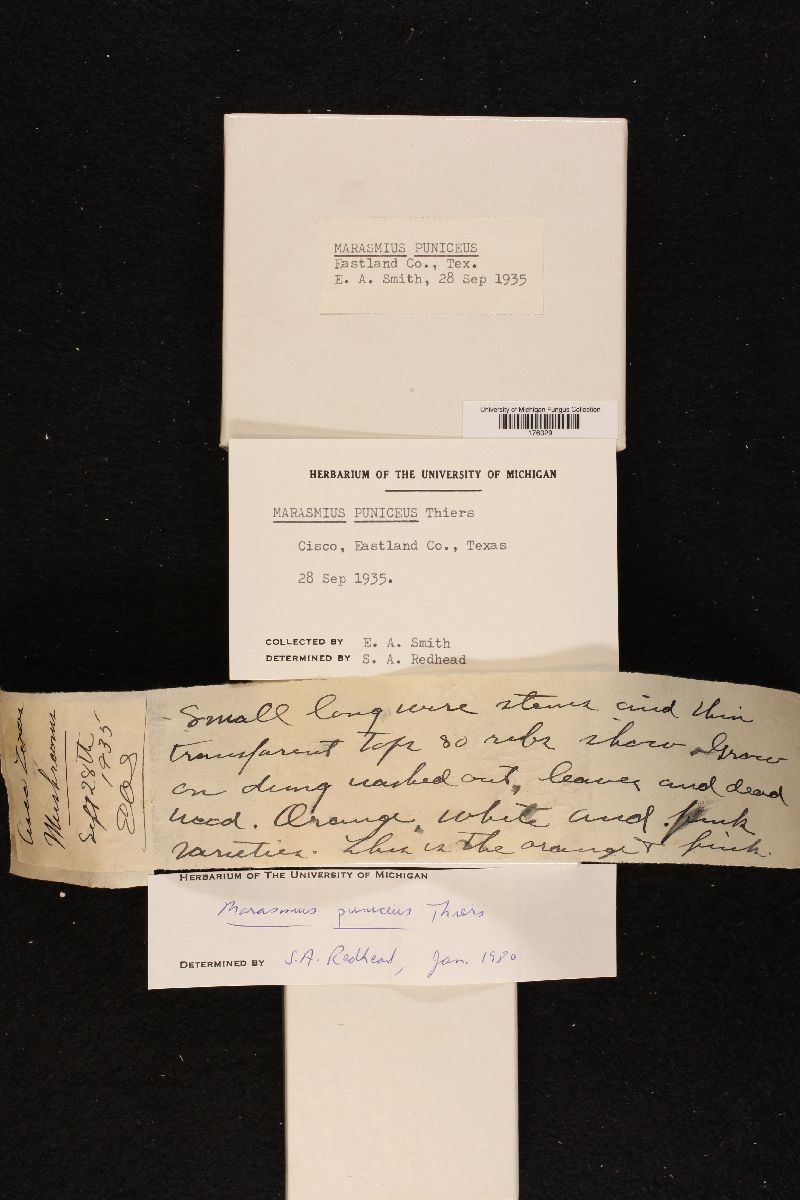 MARASMIUS PUNICEUS
Eastland Co., Tex.
E. A. Smith, 28 Sep 1935
University of Michigan Fungus Collection
176029
HERBARIUM OF THE UNIVERSITY OF MICHIGAN
MARASMIUS PUNICEUS Thiers
Cisco, Eastland Co., Texas
28 Sep 1935.
COLLECTED BY E. A. Smith
DETERMINED BY S. A. Redhead
Cisco Texas
Mushrooms
Sept 28th
1935
EAS
Small long wire stems and thin
transparent tops so ribs show. Grow
on dung washed out, leaves and dead
wood. Orange, white and pink
varieties. This is the orange & pink.
HERBARIUM OF THE UNIVERSITY OF MICHIGAN
Marasmius puniceus Thiers
DETERMINED BY S.A. Redhead, Jan. 1980